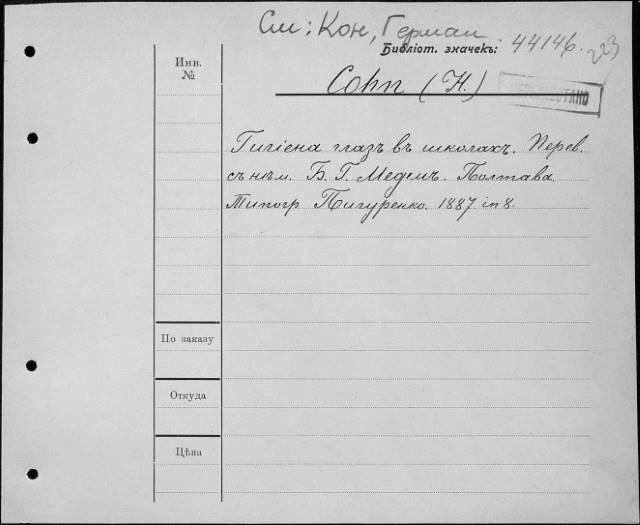 См: Кон, Герман
Инв.
№
Библіот. значекъ: 44146.
Cohn (H.)
Гигіена глазъ въ школахъ. Перев.
съ нѣм. Б. Г. Медемъ. Полтава.
Типогр Пигуренко. 1887 in 8.
По заказу
Откуда
Цѣна